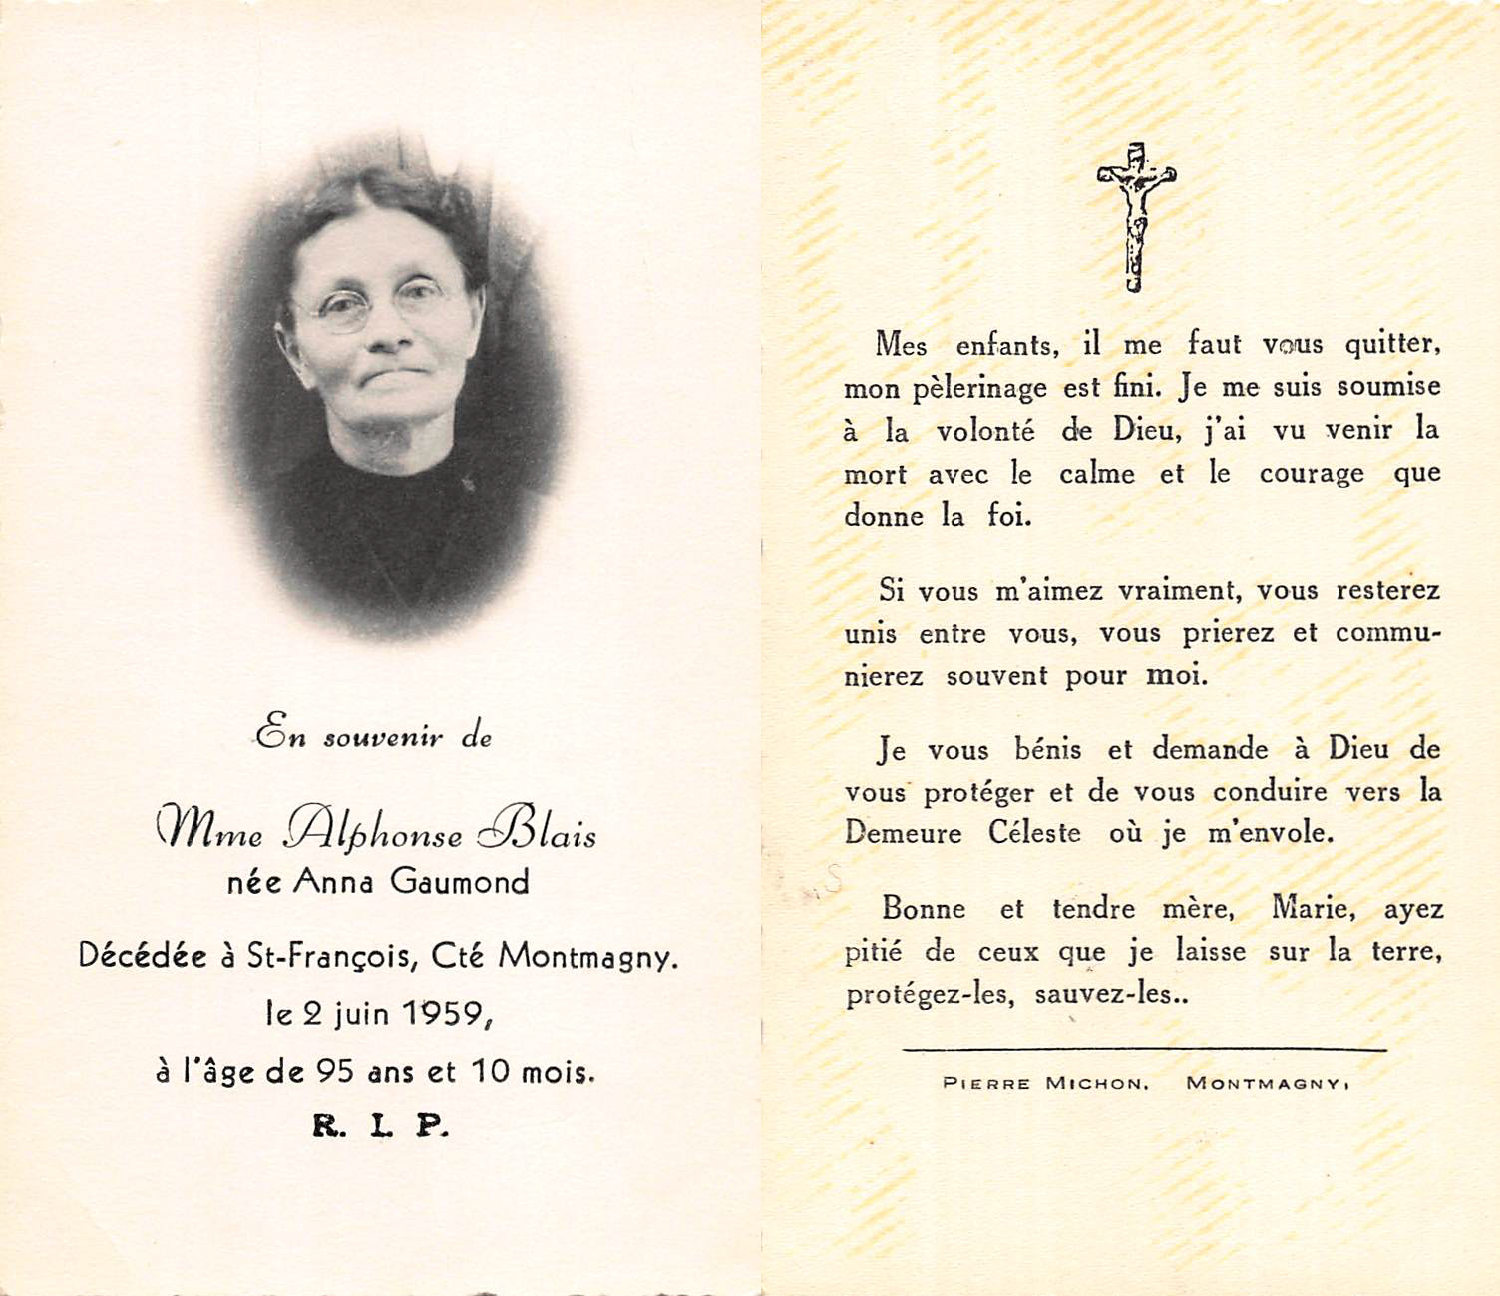 En souvenir de
Mme Alphonse Blais
née Anna Gaumond
Décédée à St-François, Cté Montmagny.
le 2 juin 1959,
à l'âge de 95 ans et 10 mois.
R. I. P.
Mes enfants, il me faut vous quitter,
mon pèlerinage est fini. Je me suis soumise
à la volonté de Dieu, j'ai vu venir la
mort avec le calme et le courage que
donne la foi.
Si vous m'aimez vraiment, vous resterez
unis entre vous, vous prierez et commu-
nierez souvent pour moi.
Je vous bénis et demande à Dieu de
vous protéger et de vous conduire vers la
Demeure Céleste où je m'envole.
Bonne et tendre mère, Marie, ayez
pitié de ceux que je laisse sur la terre,
protégez-les, sauvez-les..
PIERRE MICHON. MONTMAGNY,